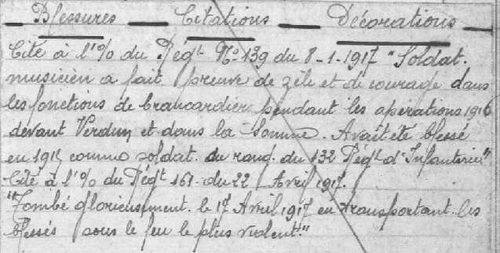 Blessures _ Citations _ Décorations
Cité à l'% du Régt No 139 du 8-1-1917 "Soldat.
musicien a fait preuve de zèle et de courage dans
les fonctions de brancardier pendant les opérations 1916
devant Verdun et dans la Somme. Avait été blessé
en 1915 comme soldat du rang du 132 Régt d'Infanterie"
Cité à l'% du Régt 161 du 22 Avril 1917.
"Tombé glorieusement le 17 Avril 1917 en transportant les
blessés sous le feu le plus violent."